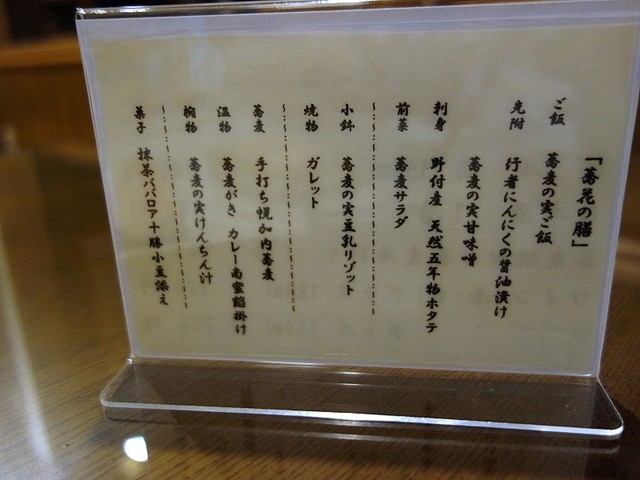 「蕎花の膳」
ご飯　蕎麦の実ご飯
先附　行者にんにくの醤油漬け
蕎麦の実甘味噌
刺身　野付産　天然五年物ホタテ
前菜　蕎麦サラダ
小鉢　蕎麦の実豆乳リゾット
焼物　ガレット
蕎麦　手打ち幌加内蕎麦
温物　蕎麦がき　カレー南蛮餡掛け
椀物　蕎麦の実けんちん汁
菓子　抹茶ババロア十勝小豆添え